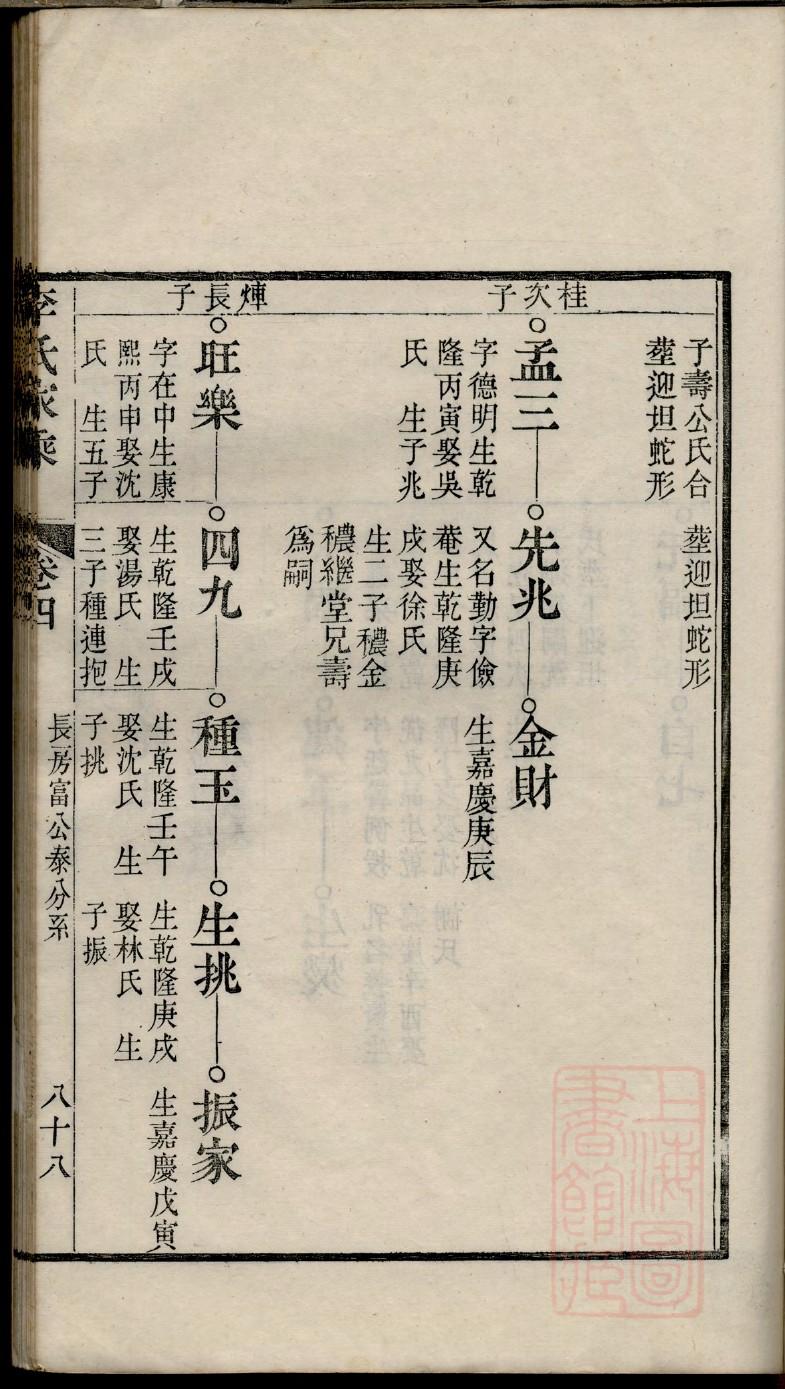 子壽公氏合
塟迎坦蛇形
塟迎坦蛇形
桂次子
孟三
字德明生乾
隆丙寅娶吳
氏　生子兆
先兆
又名勤字儉
菴生乾隆庚
戌娶徐氏
生二子穠金
穠繼堂兄壽
爲嗣
金財
生嘉慶庚辰
煉長子
旺樂
字在中生康
熙丙申娶沈
氏　生五子
四九
生乾隆壬戌
娶湯氏　生
三子種連抱
種玉
生乾隆壬午
娶沈氏　生
子挑
生挑
生乾隆庚戌
娶林氏　生
子振
振家
生嘉慶戊寅
李氏家乘
卷四
長房富公泰分系
八十八
上海圖書館藏